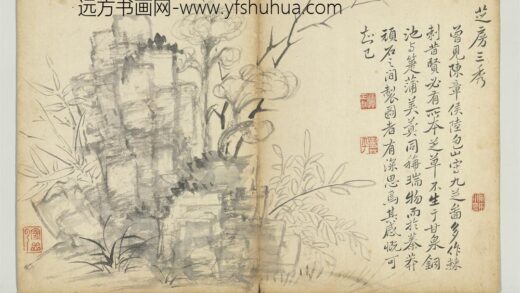 远方书画网-www.yfshuhua.com
芝房三秀
曾見陳章侯陸包山寫九芝啚多作棘
刺昔賢必有所本芝草不生于甘泉銅
池与箑蒲蓂莢同稱瑞物而於蓁莽
頑石之間製圖者有深思焉其感慨可
知已